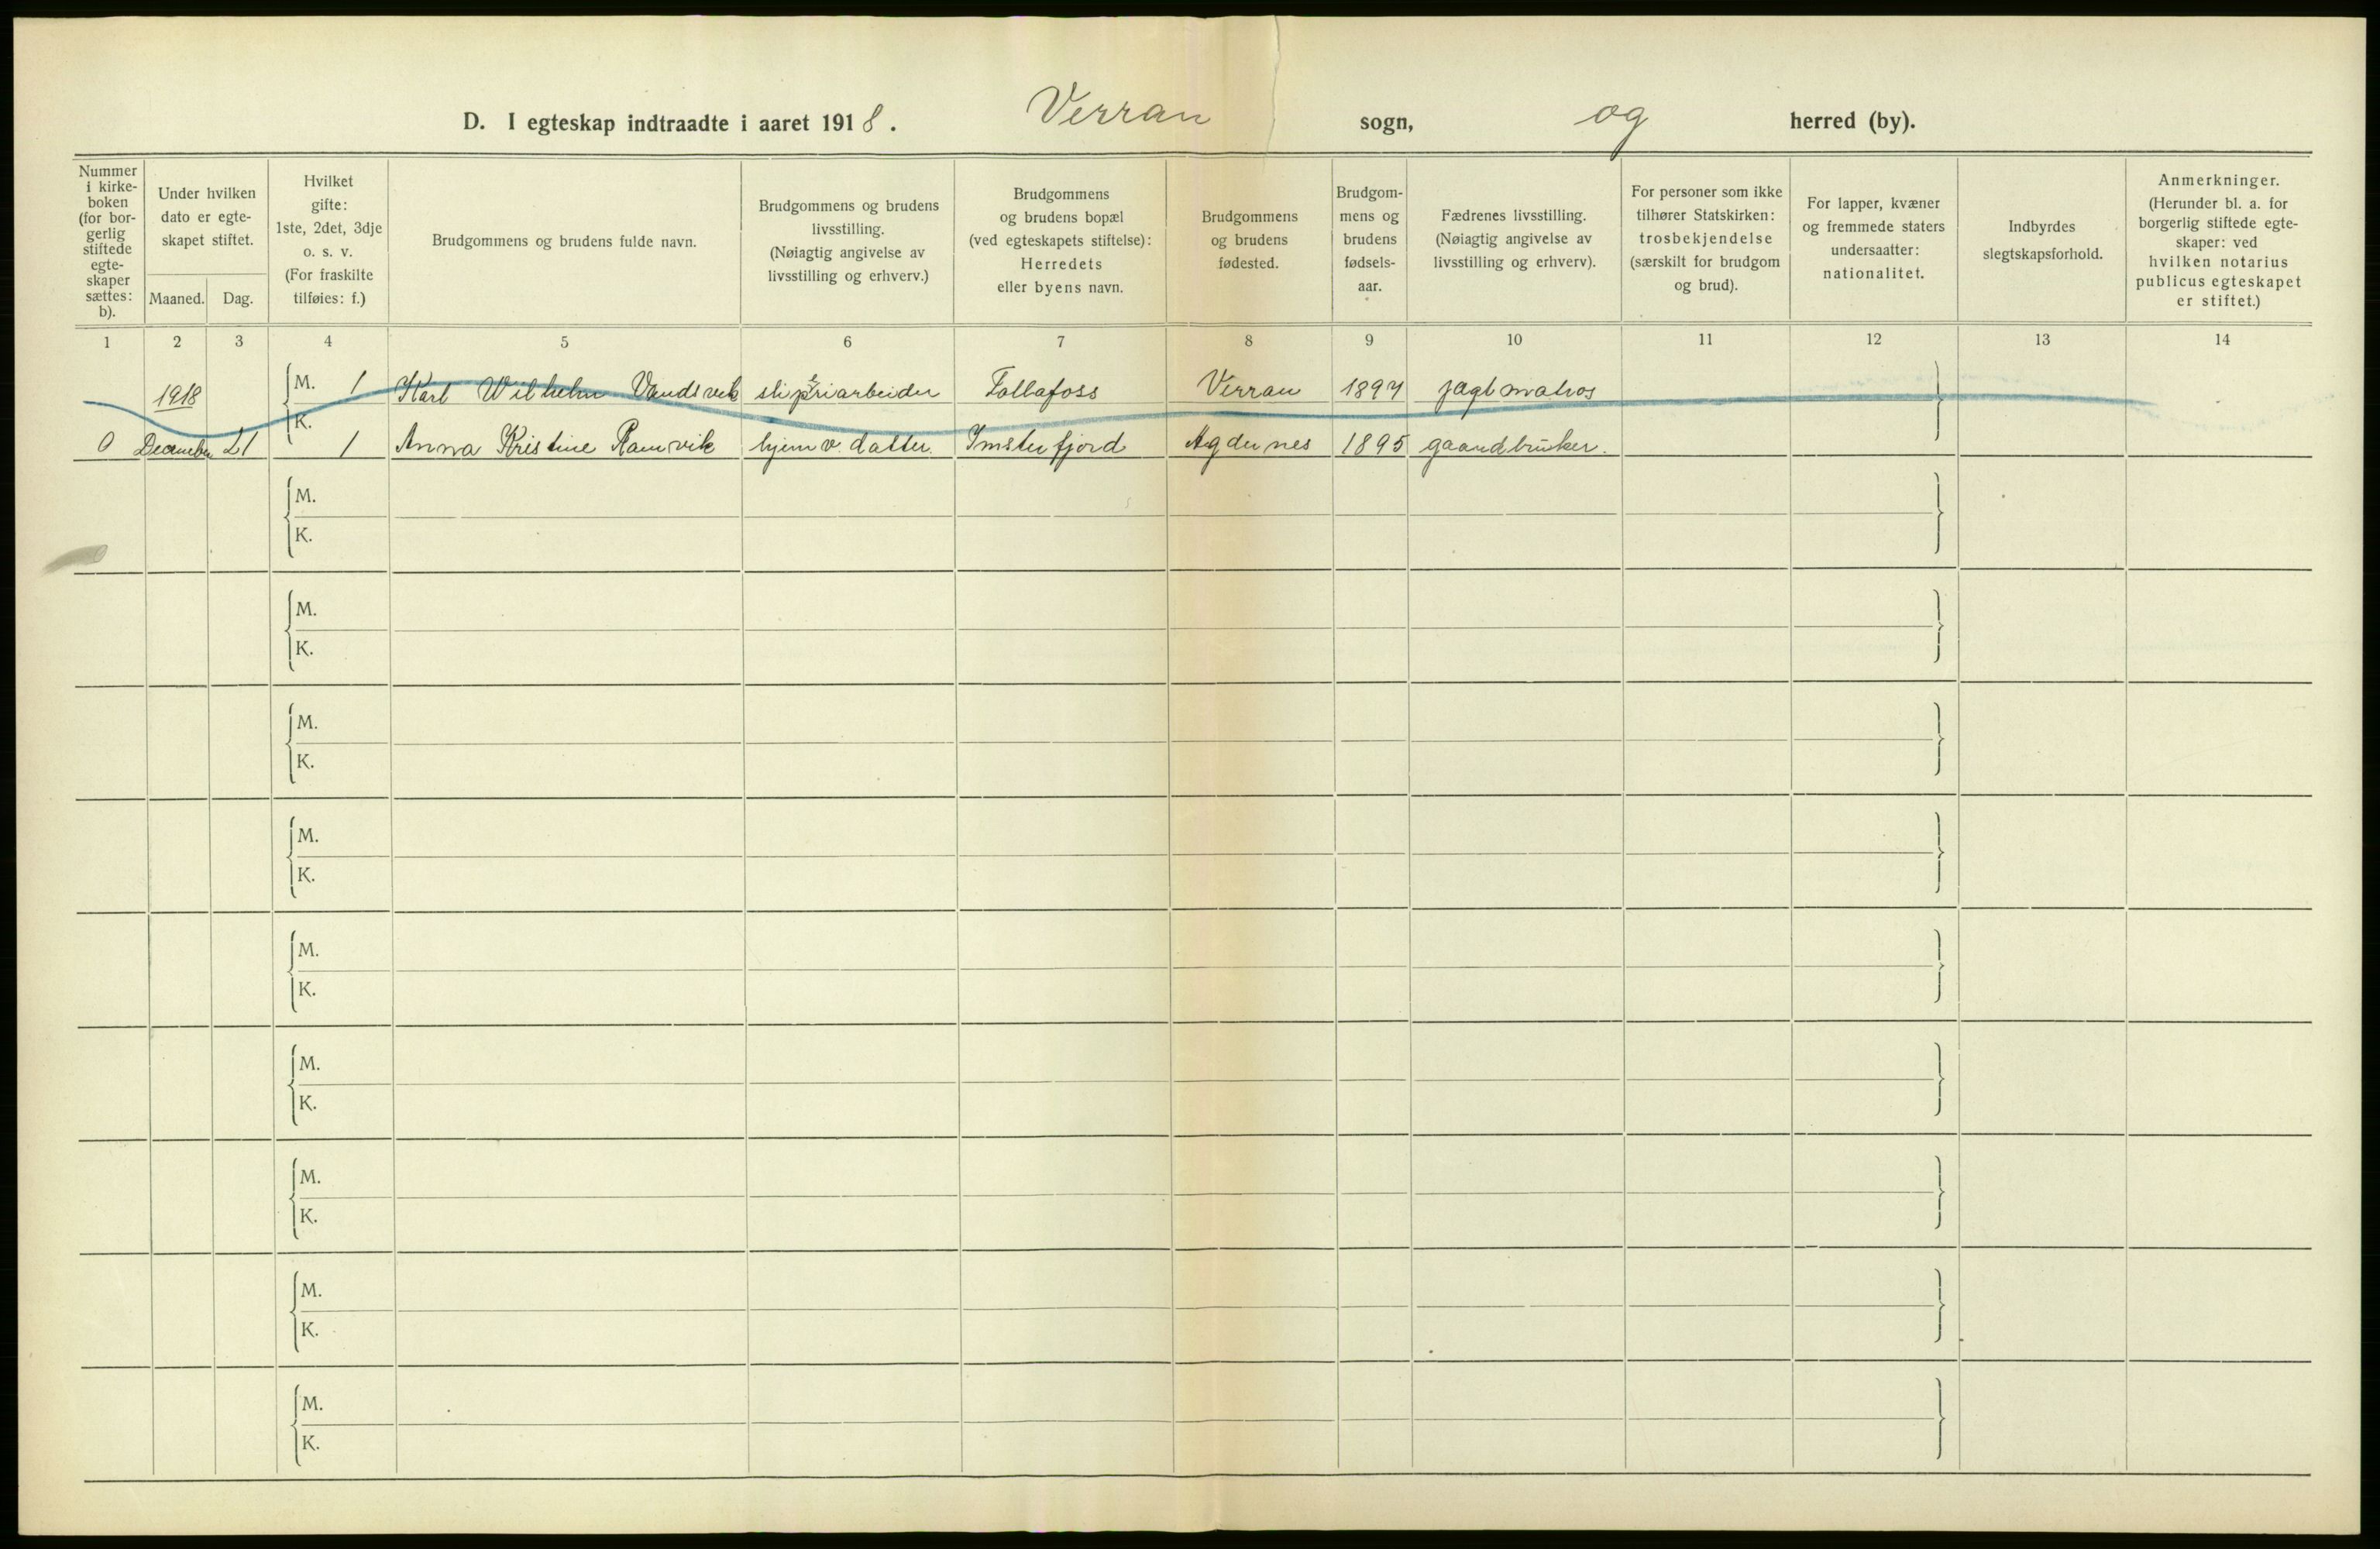 D. I egteskap indtraadte i aaret 1918. Verran sogn, og herred (by).
Nummer i kirkeboken (for borgerlig stiftede egteskaper sættes: b).
Under hvilken dato er egteskapet stiftet.
Maaned. Dag.
Hvilket gifte: 1ste, 2det, 3dje o. s. v. (For fraskilte tilføies: f.)
Brudgommens og brudens fulde navn.
Brudgommens og brudens livsstilling. (Nøiagtig angivelse av livsstilling og erhverv.)
Brudgommens og brudens bopæl (ved egteskapets stiftelse): Herredets eller byens navn.
Brudgommens og brudens fødested.
Brudgommens og brudens fødselsaar.
Fædrenes livsstilling. (Nøiagtig angivelse av livsstilling og erhverv).
For personer som ikke tilhører Statskirken: trosbekjendelse (særskilt for brudgom og brud).
For lapper, kvæner og fremmede staters undersaatter: nationalitet.
Indbyrdes slegtskapsforhold.
Anmerkninger. (Herunder bl. a. for borgerlig stiftede egteskaper: ved hvilken notarius publicus egteskapet er stiftet.)
1 2 3 4 5 6 7 8 9 10 11 12 13 14
1918 M. 1 Karl Wilhelm Vandsvik sliperiarbeider Follafoss Verran 1897 jagtmatros
K.
0 December 21 1 Anna Kristine Ramvik hjemv. datter. Imsterfjord Agdenes 1895 gaardbruker.
M.
K.
M.
K.
M.
K.
M.
K.
M.
K.
M.
K.
M.
K.
M.
K.
M.
K.